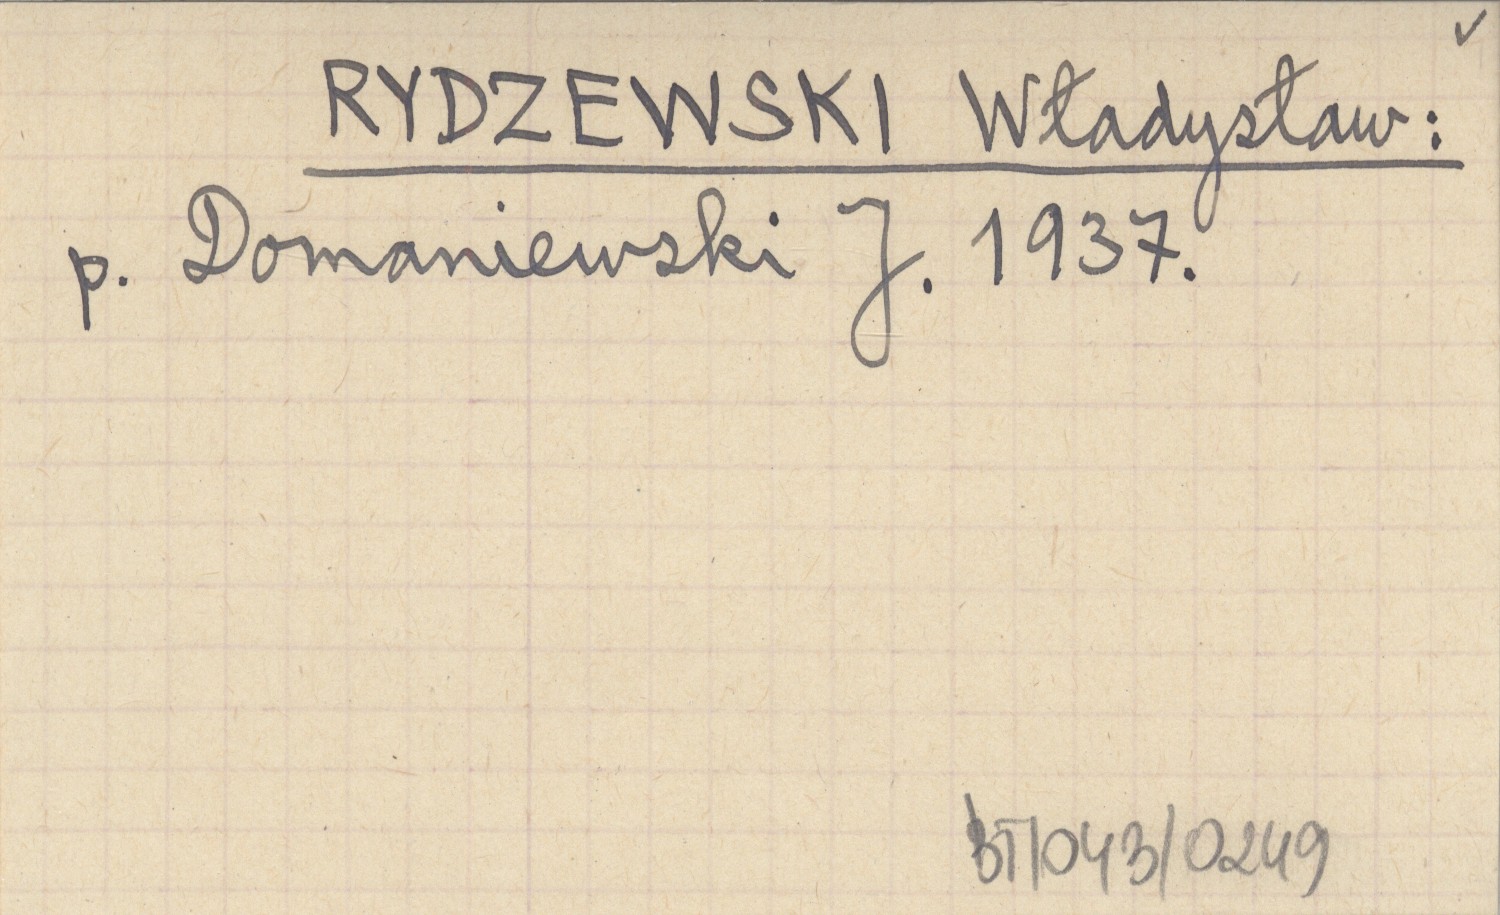 RYDZEWSKI Władysław:
p. Domaniewski J. 1937.
BT/043/0249